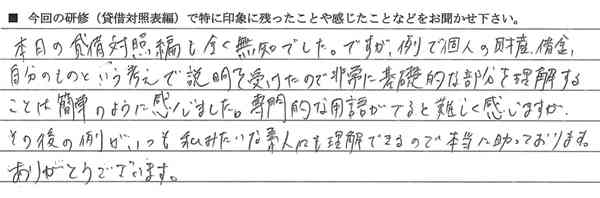 ■ 今回の研修（貸借対照表編）で特に印象に残ったことや感じたことなどをお聞かせ下さい。
本日の貸借対照編も全く無知でした。ですが、例で個人の財産、借金、
自分のものという考えで説明を受けたので非常に基礎的な部分を理解する
ことは簡単のように感じました。専門的な用語がでると難しく感じますが、
その後の例がいつも私みたいな素人にも理解できるので本当に助っております。
ありがとうございます。